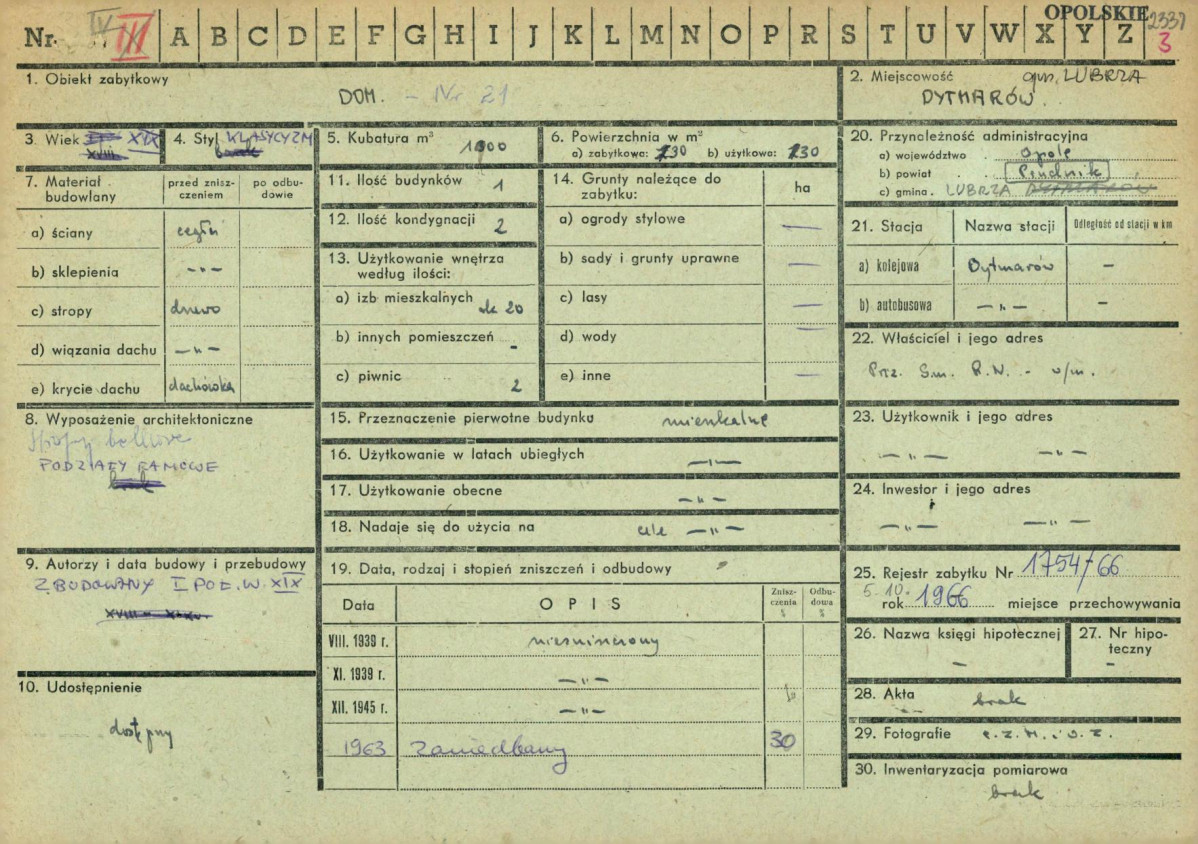 OPOLSKIE 2337
Nr. IV III A B C D E F G H I J K L M N O P R S T U V W X Y Z 3
1. Obiekt zabytkowy
DOM. - Nr 21
2. Miejscowość gm. LUBRZA
DYTMARÓW.
3 Wiek XIX
XVIII
4. Styl KLASYCYZM
brak
5. Kubatura m³ 1900
6. Powierzchnia w m²
a) zabytkowa: 730 b) użytkowa: 730
7. Materiał budowlany
przed znisz-
czeniem
po odbu-
dowie
a) ściany cegła
b) sklepienia -"-
c) stropy drewo
d) wiązania dachu -"-
e) krycie dachu dachówka
8. Wyposażenie architektoniczne
Stropy belkowe
PODZIAŁY RAMOWE
brak
9. Autorzy i data budowy i przebudowy
ZBUDOWANY I POŁ. W. XIX
10. Udostępnienie
dostępny
11. Ilość budynków 1
12. Ilość kondygnacji 2
13. Użytkowanie wnętrza
według ilości:
a) izb mieszkalnych ok 20
b) innych pomieszczeń -
c) piwnic 2
14. Grunty należące do
zabytku:
ha
a) ogrody stylowe —
b) sady i grunty uprawne —
c) lasy —
d) wody —
e) inne —
15. Przeznaczenie pierwotne budynku mieszkalne
16. Użytkowanie w latach ubiegłych -"-
17. Użytkowanie obecne -"-
18. Nadaje się do użycia na cele -"-
19. Data, rodzaj i stopień zniszczeń i odbudowy
Data OPIS
Znisz-
czenia
%
Odbu-
dowa
%
VIII. 1939 r. niezniszczony
XI. 1939 r. -"-
XII. 1945 r. -"- %
1963 zaniedbany 30
20. Przynależność administracyjna
a) województwo Opole
b) powiat Prudnik
c) gmina. LUBRZA DYTMARÓW
21. Stacja Nazwa stacji Odległość od stacji w km
a) kolejowa Dytmarów -
b) autobusowa -"- -
22. Właściciel i jego adres
Prz. Gm. R.N. - w/m.
23. Użytkownik i jego adres
-"- -"-
24. Inwestor i jego adres
-"- -"-
25. Rejestr zabytku Nr 1754/66
5.10.
rok 1966 miejsce przechowywania
26. Nazwa księgi hipotecznej
-
27. Nr hipo-
teczny
-
28. Akta brak
29. Fotografie
30. Inwentaryzacja pomiarowa
brak